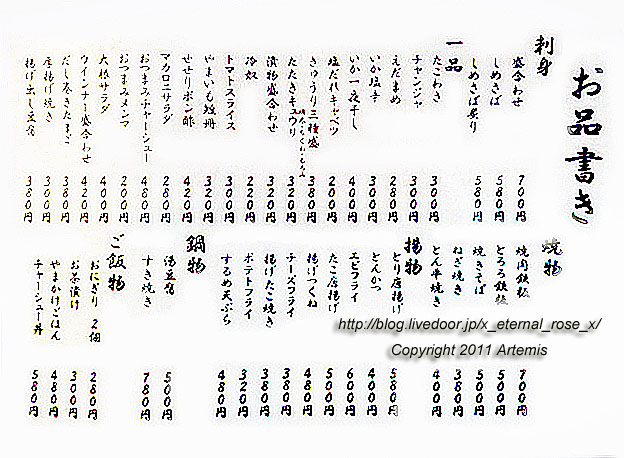 お品書き
刺身
盛合わせ 700円
しめさば 580円
しめさば炙り 580円
一品
たこわさ 300円
チャンジャ 400円
えだまめ 280円
いか塩辛 300円
いか一夜干し 400円
塩だれキャベツ 200円
きゅうり三種盛 380円
たたきキュウリ 320円
漬物盛合わせ 320円
冷奴 220円
トマトスライス 300円
やまいも短冊 320円
せせりポン酢 420円
マカロニサラダ 280円
おつまみチャーシュー 480円
おつまみメンマ 200円
大根サラダ 400円
ウインナー盛合わせ 420円
だし巻きたまご 380円
厚揚げ焼き 300円
揚げ出し豆腐 380円
焼物
焼肉鉄板 700円
とろろ鉄板 500円
焼きそば 500円
ねぎ焼き 380円
とん平焼き 400円
揚物
とり唐揚げ 580円
とんかつ 400円
エビフライ 600円
たこ唐揚げ 500円
揚げつくね 480円
チーズフライ 380円
揚げたこ焼き 380円
ポテトフライ 320円
するめ天ぷら 480円
鍋物
湯豆腐 500円
すき焼き 780円
ご飯物
おにぎり 2個 280円
お茶漬け 300円
やまかけごはん 480円
チャーシュー丼 580円
http://blog.livedoor.jp/x_eternal_rose_x/
Copyright 2011 Artemis